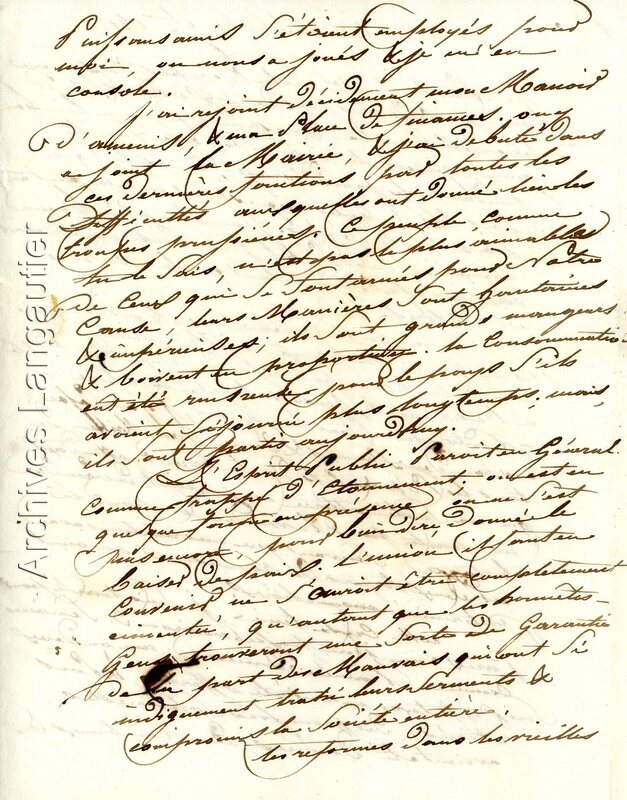 Puissans amis s'étoient employés pour
moi, on nous a joués & je m'en
console.
J'ai rejoint décidément mon Manoir
d'amenis, & ma Place de finances. on y
a joint la Mairie, & j'ai débuté dans
ces dernières fonctions par toutes les
Difficultés auxquelles ont donné lieu les
troupes prussiènes. Ce peuple comme
tu le sais, n'est pas le plus aimable
de ceux qui se sont armés pour Notre
Cause, leurs Manières sont hautaines
& impérieuses; ils sont grands mangeurs
& boivent en proportion. la Consommation
eut été ruineuse pour le pays s'ils
avoient séjourné plus longtemps, mais
ils sont partis aujourd'huy.
L'Esprit Public Paroit en Général
comme frappé d'étonnement. on est en
quelque sorte en présence on ne s'est
pas encore, pour bien dire, donné le
baiser de paix. l'union il faut en
Convenir ne sauroit être complètement
cimentée, qu'autant que les honnêtes
Gens trouveront une Sorte de Garantie
de la part des Mauvais qui ont si
indignement trahi leurs serments &
compromis la Société entière;
les réformes dans les vieilles
Archives Langautier